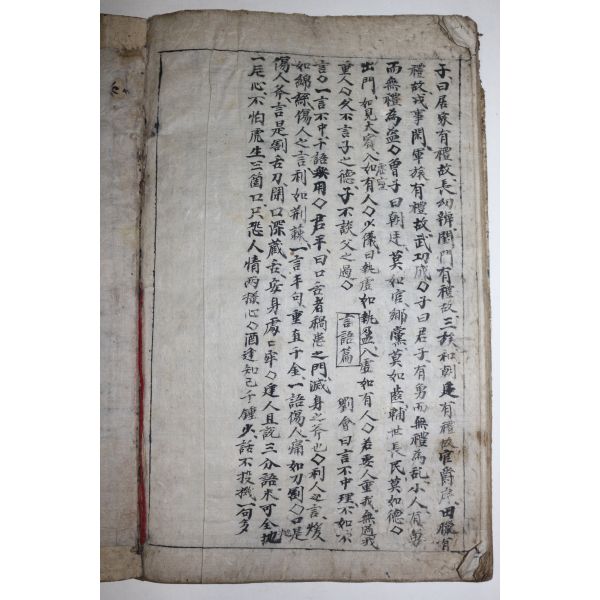 子曰居家有禮故長幼辨閨門有禮故三族和朝廷有禮故官爵序田獵有
禮故戎事閑軍旅有禮故武功成◇子曰君子有勇而無禮為乱小人有勇
而無禮為盜◇曾子曰朝廷莫如官鄉黨莫如齒輔世長民莫如德◇
出門如見大賓入如有人◇少儀曰執虛如執盈入虛如有人◇若要人重我無過我
重人◇父不言子之德子不談父之過◇ 言語篇 劉會曰言不中理不如不
言◇一言不中千語無用◇君平曰口舌者禍患之門滅身之斧也◇利人之言煖
如綿絲傷人之言利如荊棘一言半句重直千金一語傷人痛如刀割◇口是
傷人斧言是割舌刀閉口深藏舌安身處口牢◇逢人且說三分語未可全抛
一片心不怕虎生三箇口只恐人情兩樣心◇酒逢知己千鍾少話不投機一句多